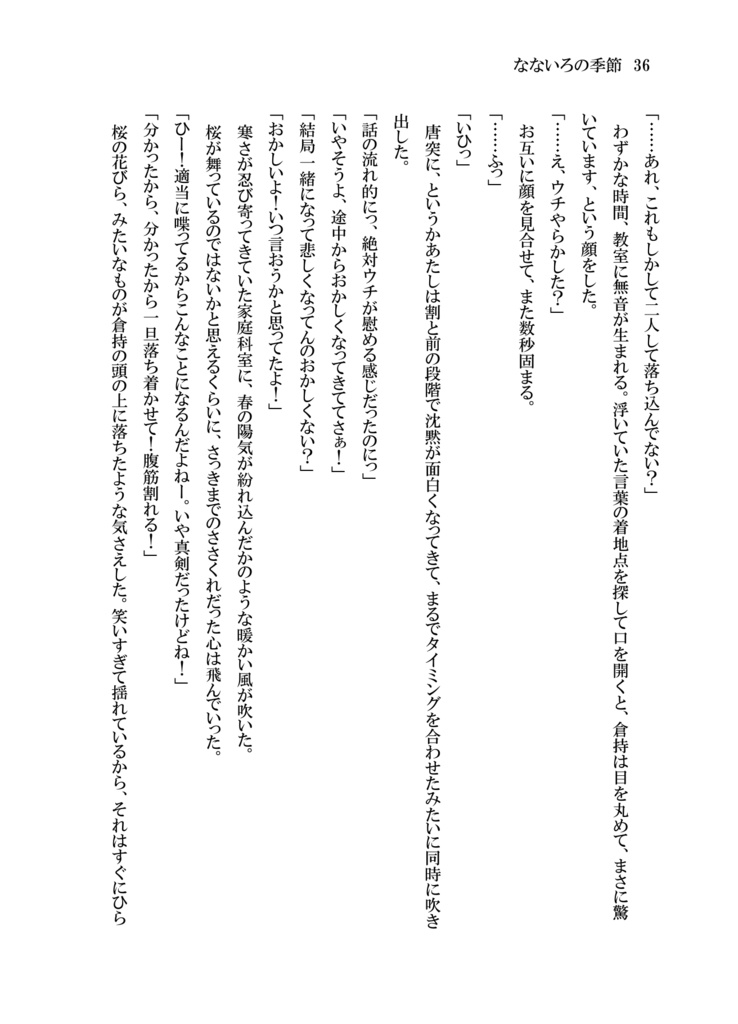 なないろの季節 36
「……あれ、これもしかして二人して落ち込んでない？」
わずかな時間、教室に無音が生まれる。浮いていた言葉の着地点を探して口を開くと、倉持は目を丸めて、まさに驚
いています、という顔をした。
「……え、ウチやらかした？」
お互いに顔を見合せて、また数秒固まる。
「……ふっ」
「いひっ」
唐突に、というかあたしは割と前の段階で沈黙が面白くなってきて、まるでタイミングを合わせたみたいに同時に吹き
出した。
「話の流れ的にっ、絶対ウチが慰める感じだったのにっ」
「いやそうよ、途中からおかしくなってきててさぁ！」
「結局一緒になって悲しくなってんのおかしくない？」
「おかしいよ！いつ言おうかと思ってたよ！」
寒さが忍び寄ってきていた家庭科室に、春の陽気が紛れ込んだかのような暖かい風が吹いた。
桜が舞っているのではないかと思えるくらいに、さっきまでのささくれだった心は飛んでいった。
「ひー！適当に喋ってるからこんなことになるんだよねー。いや真剣だったけどね！」
「分かったから、分かったから一旦落ち着かせて！腹筋割れる！」
桜の花びら、みたいなものが倉持の頭の上に落ちたような気さえした。笑いすぎて揺れているから、それはすぐにひら